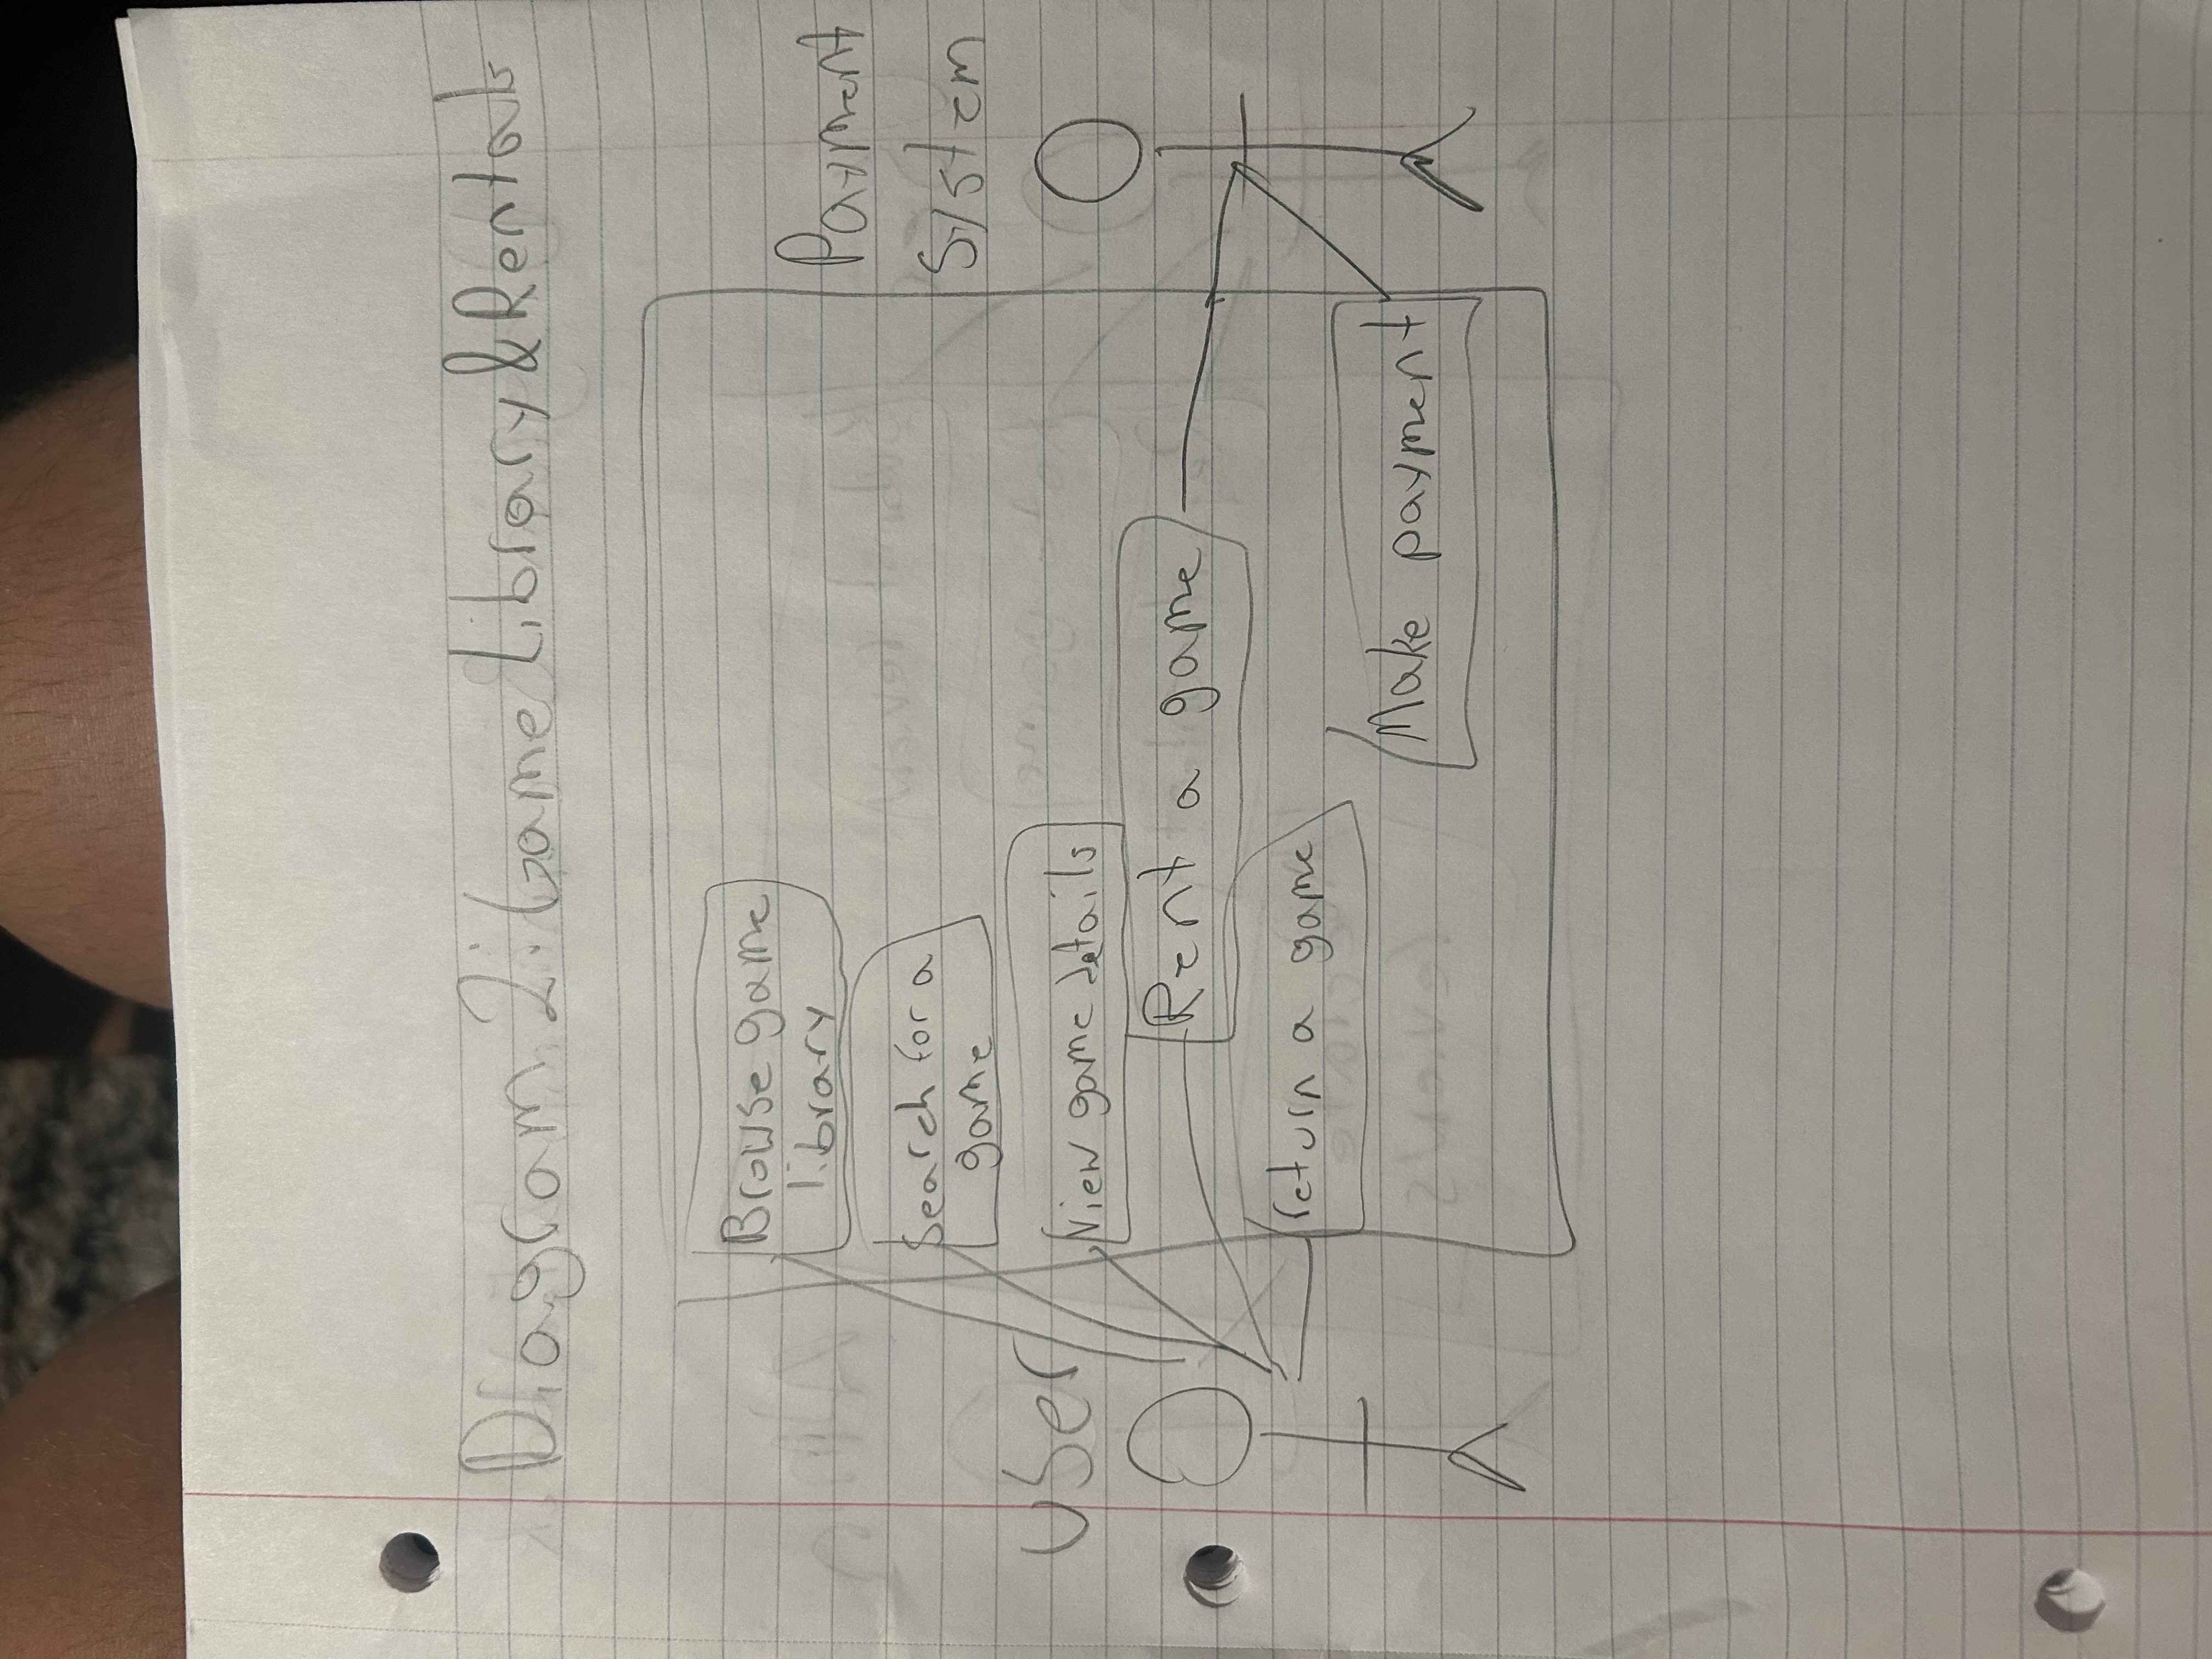 Diagram 2: Game Library & Rentals
Payment
System
User
Browse game
library
Search for a
game
View game details
Rent a game
return a game
Make payment